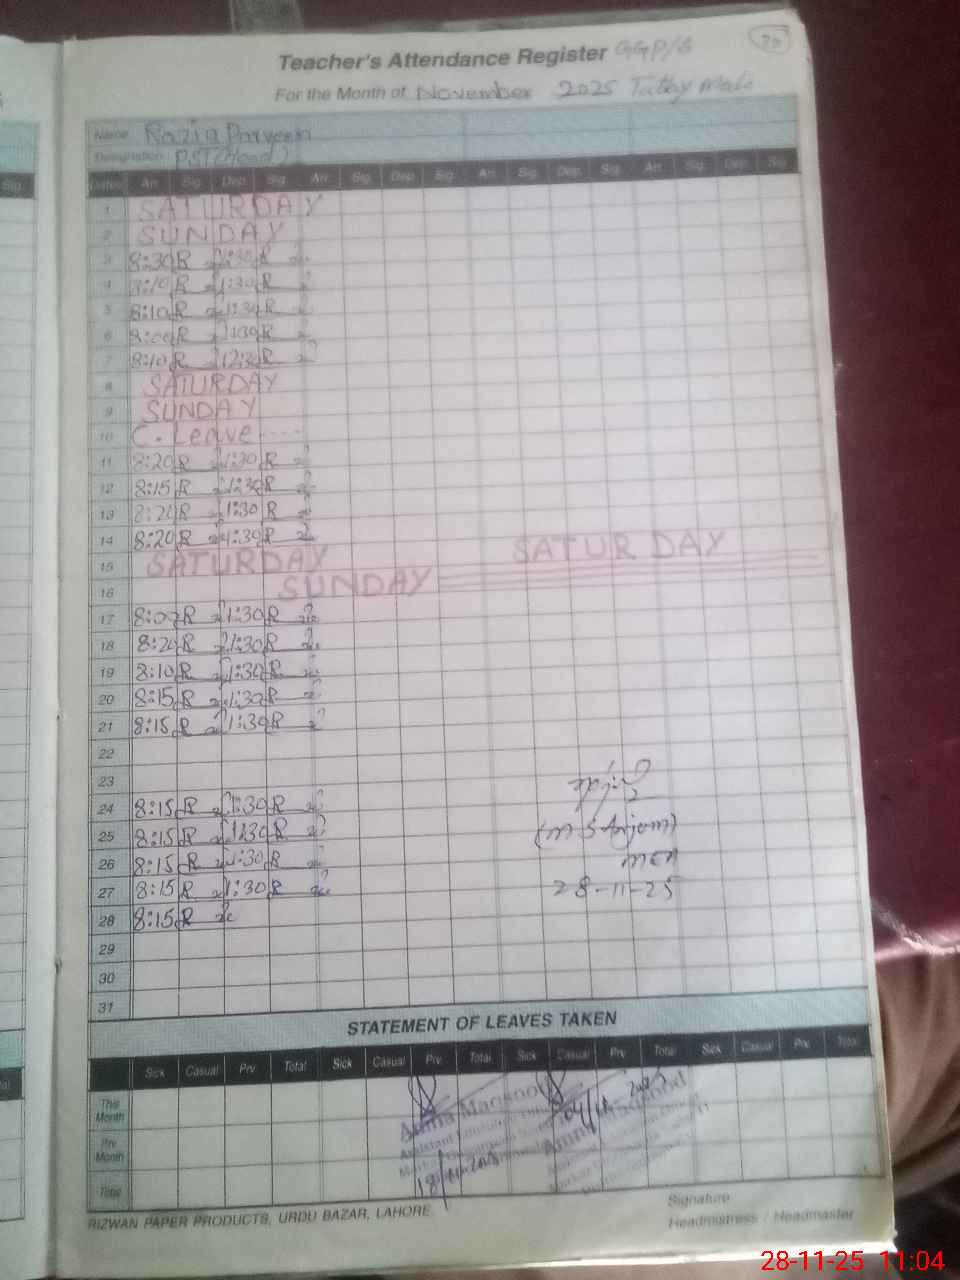 Teacher's Attendance Register GGP/S
20
For the Month of November 2025 Tatby Male
Name Razia Parveen
Designation PST (Head)
Dates Arr. Sig. Dep. Sig. Arr. Sig. Dep. Sig. Arr. Sig. Dep. Sig. Arr. Sig. Dep. Sig.
1 SATURDAY
2 SUNDAY
3 8:30 R 1:30 R
4 8:10 R 1:30 R
5 8:10 R 1:30 R
6 8:00 R 1:30 R
7 8:10 R 12:30 R
8 SATURDAY
9 SUNDAY
10 C. Leave ----
11 8:20 R 1:30 R
12 8:15 R 1:30 R
13 8:20 R 1:30 R
14 8:20 R 1:30 R
15 SATURDAY SATURDAY
16 SUNDAY
17 8:00 R 1:30 R
18 8:20 R 1:30 R
19 8:10 R 1:30 R
20 8:15 R 1:30 R
21 8:15 R 1:30 R
22
23
24 8:15 R 1:30 R
25 8:15 R 1:30 R
26 8:15 R 1:30 R
27 8:15 R 1:30 R
28-11-25
28 8:15 R
29
30
31
STATEMENT OF LEAVES TAKEN
Sick Casual Prv. Total Sick Casual Prv. Total Sick Casual Prv. Total Sick Casual Prv. Total
This Month
Prv. Month
Total
RIZWAN PAPER PRODUCTS, URDU BAZAR, LAHORE.
Signature
Headmistress / Headmaster
28-11-25 11:04